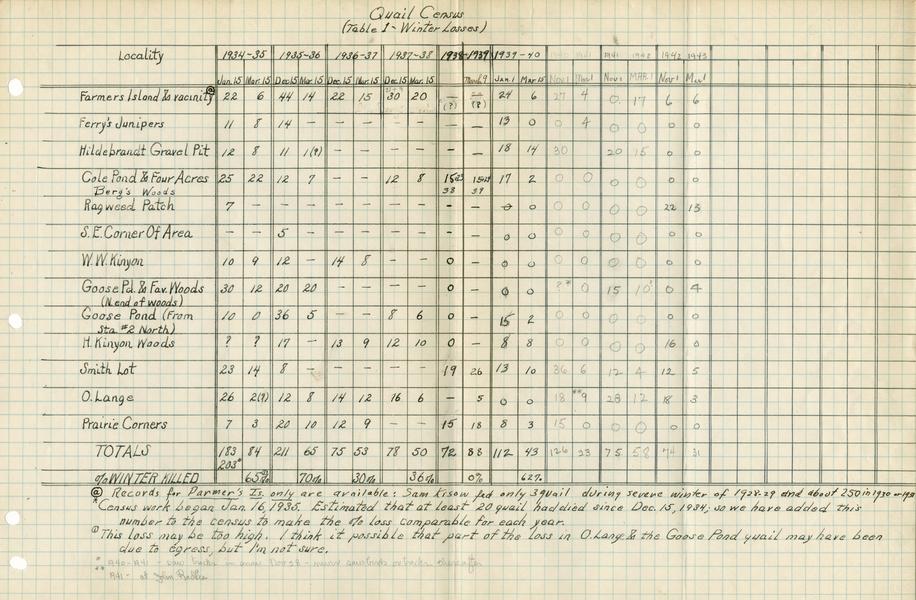 Quail Census
(Table 1 - Winter Losses)
Locality 1934-35 1935-36 1936-37 1937-38 1938-1939 1939-40 1940 1941 1941 1942 1942 1943
Jan.15 Mar.15 Dec.15 Mar.15 Dec.15 Mar.15 Dec.15 Mar.15 March 9 Jan 1 Mar 15 Nov 1 Mar 1 Nov 1 MAR 1 Nov 1 Mar 1
Farmers Island & vacinity @ 22 6 44 14 22 15 30 20 — (?) (?) 24 6 27 4 0 17 6 6
Ferry's Junipers 11 8 14 — — — — — — — 13 0 0 4 0 0 0 0
Hildebrandt Gravel Pit 12 8 11 1(?) — — — — — — 18 14 30 20 15 0 0
Cole Pond & Four Acres 25 22 12 7 — — 12 8 15 15 17 2 0 0 0 0 0 0
Berg's Woods 38 39
Ragweed Patch 7 — — — — — — — — — 0 0 0 0 0 0 22 13
S.E. Corner Of Area — — 5 — — — — — — — 0 0 0 0 0 0 0 0
W.W. Kinyon 10 9 12 — 14 8 — — 0 — 0 0 0 0 0 0 0 0
Goose Pd. & Fav. Woods 30 12 20 20 — — — — 0 — 0 0 ?* 0 15 10 0 4
(N. end of woods)
Goose Pond (From 10 0 36 5 — — 8 6 0 — 15 2 0 0 0 0 0 0
Sta. #2 North)
H. Kinyon Woods ? ? 17 — 13 9 12 10 0 — 8 8 0 0 0 0 16 0
Smith Lot 23 14 8 — — — — — 19 26 13 10 36 6 12 4 12 5
O. Lange 26 2(?) 12 8 14 12 16 6 — 5 0 0 18 **9 28 12 18 3
Prairie Corners 7 3 20 10 12 9 — — 15 18 8 3 15 0 0 0 0 0
TOTALS 183 84 211 65 75 53 78 50 72 88 112 43 126 23 75 58 74 31
203*
% WINTER KILLED 65% 70% 30% 36% 0% 62%
@ Records for Farmer's Is. only are available: Sam Kisow fed only 3 quail during severe winter of 1928-29 and about 250 in 1930 or 1931
* Census work began Jan. 16, 1935. Estimated that at least 20 quail had died since Dec. 15, 1934; so we have added this
number to the census to make the % loss comparable for each year.
This loss may be too high. I think it possible that part of the loss in O. Lange & the Goose Pond quail may have been
due to egress, but I'm not sure.
* 1940-1941 - saw tracks in snow Nov 28 - never saw birds or tracks thereafter
** 1941 - at John